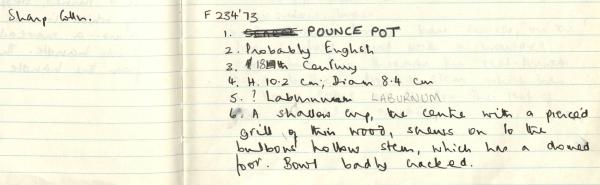 Sharp Colln.
F 234'73
1. POUNCE POT
2. Probably English
3. 18th Century
4. H. 10.2 cm; Diam 8.4 cm
5. ? Laburnum LABURNUM
6. A shallow cup, the centre with a pierced
grill of thin wood, screws on to the
bulbous hollow stem, which has a domed
foot. Bowl badly cracked.